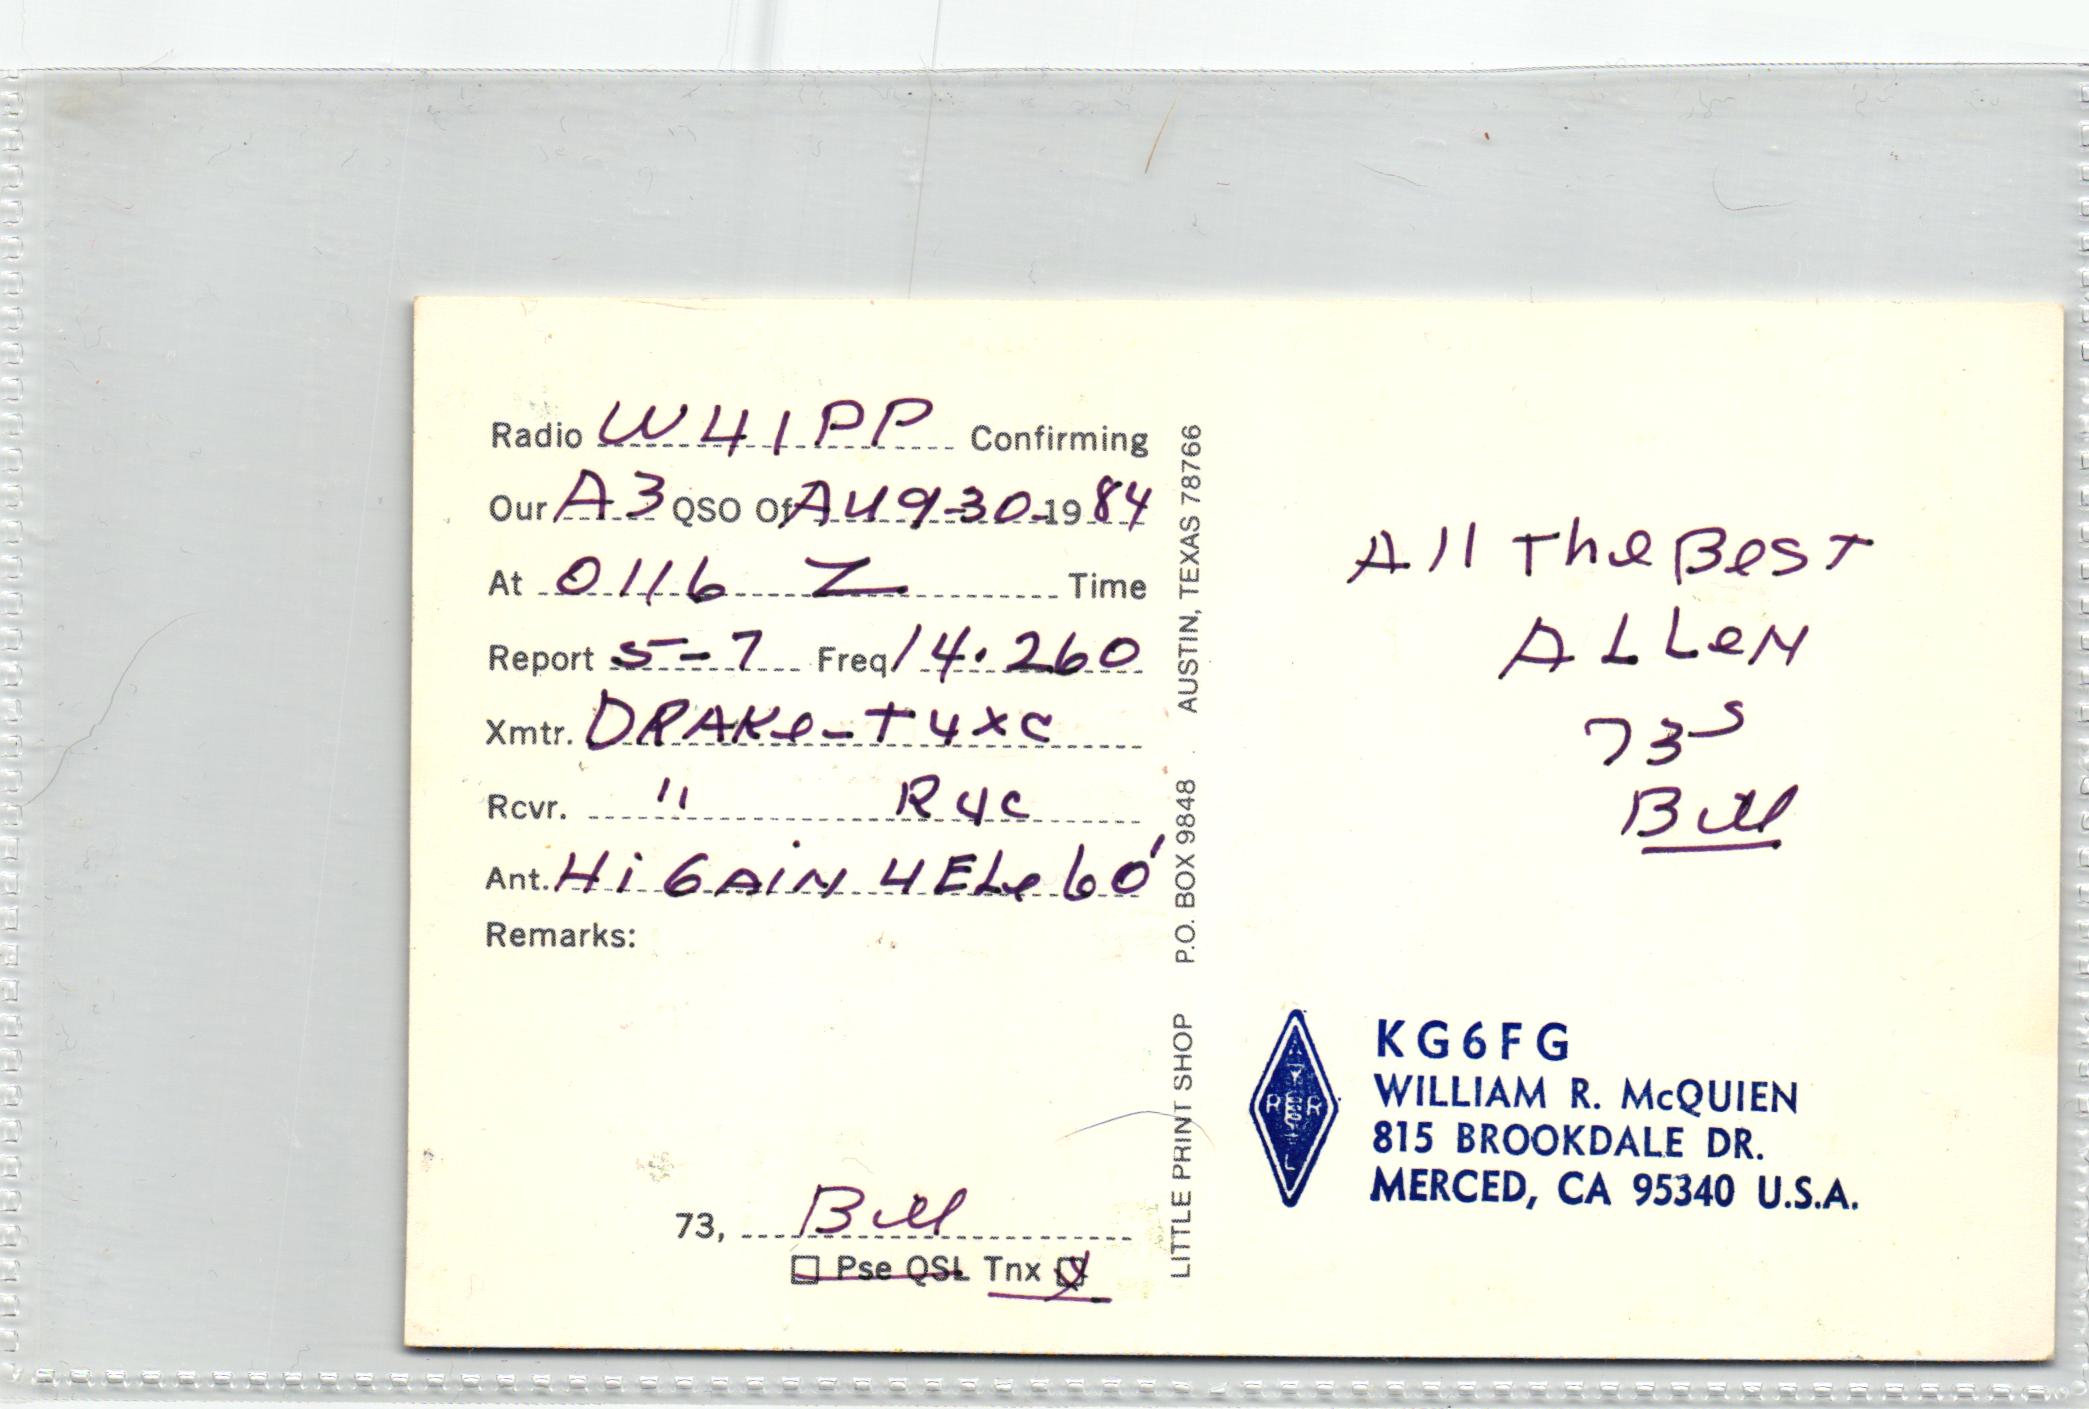 Radio W4IPP Confirming
Our A3 QSO Of AUG-30-1984
At 0116 Z Time
Report 5-7 Freq 14.260
Xmtr. DRAKe-T4XC
Rcvr. " R4C
Ant. Hi GAiN 4 ELe 60'
Remarks:
73, Bill
Pse QSL Tnx X
LITTLE PRINT SHOP P.O. BOX 9848 AUSTIN, TEXAS 78766
All The BesT
ALLeN
73s
Bill
ARRL
KG6FG
WILLIAM R. McQUIEN
815 BROOKDALE DR.
MERCED, CA 95340 U.S.A.